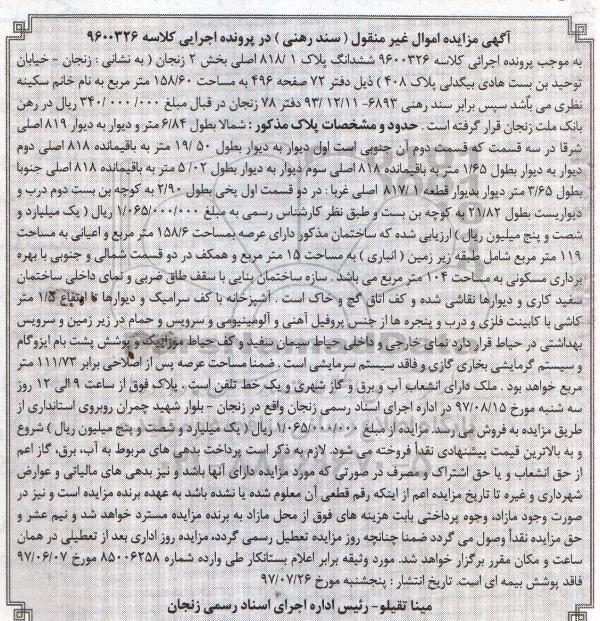 آگهی مزایده اموال غیر منقول ( سند رهنی ) در پرونده اجرایی کلاسه ۹۶۰۰۳۲۶
به موجب پرونده اجرائی کلاسه ۹۶۰۰۳۲۶ ششدانگ پلاک ۱ /۸۱۸ اصلی بخش ۲ زنجان ( به نشانی : زنجان - خیابان
توحید بن بست هادی بیگدلی پلاک ۴۰۸ ) ذیل دفتر ۷۲ صفحه ۴۹۶ به مساحت ۱۵۸/۶۰ متر مربع به نام خانم سکینه
نظری می باشد سپس برابر سند رهنی ۶۸۹۳- ۹۳/ ۱۲/۱۱ دفتر ۷۸ زنجان در قبال مبلغ ۳۴۰/۰۰۰/۰۰۰ ریال در رهن
بانک ملت زنجان قرار گرفته است . حدود و مشخصات پلاک مذکور : شمالا بطول ۶/۸۴ متر و دیوار به دیوار ۸۱۹ اصلی
شرقا در سه قسمت که قسمت دوم آن جنوبی است اول دیوار به دیوار بطول ۱۹/۵۰ متر به باقیمانده ۸۱۸ اصلی دوم
دیوار به دیوار بطول ۱/۶۵ متر به باقیمانده ۸۱۸ اصلی سوم دیوار به دیوار بطول ۵/۰۲ متر به باقیمانده ۸۱۸ اصلی جنوبا
بطول ۳/۶۵ متر دیوار بدیوار قطعه ۸۱۷/۱ اصلی غربا : در دو قسمت اول پخی بطول ۲/۹۰ به کوچه بن بست دوم درب و
دیواریست بطول ۲۱/۸۲ به کوچه بن بست و طبق نظر کارشناس رسمی به مبلغ ۱/۰۶۵/۰۰۰/۰۰۰ ریال ( یک میلیارد و
شصت و پنج میلیون ریال ) ارزیابی شده که ساختمان مذکور دارای عرصه بمساحت ۱۵۸/۶ متر مربع و اعیانی به مساحت
۱۱۹ متر مربع شامل طبقه زیر زمین ( انباری ) به مساحت ۱۵ متر مربع و همکف در دو قسمت شمالی و جنوبی با بهره
برداری مسکونی به مساحت ۱۰۴ متر مربع می باشد . سازه ساختمان بنایی با سقف طاق ضربی و نمای داخلی ساختمان
سفید کاری و دیوارها نقاشی شده و کف اتاق گچ و خاک است . آشپزخانه با کف سرامیک و دیوارها تا ارتفاع ۱/۵ متر
کاشی با کابینت فلزی و درب و پنجره ها از جنس پروفیل آهنی و آلومینیومی و سرویس و حمام در زیر زمین و سرویس
بهداشتی در حیاط قرار دارد نمای خارجی و داخلی حیاط سیمان سفید و کف حیاط موزائیک و پوشش پشت بام ایزوگام
و سیستم گرمایشی بخاری گازی و فاقد سیستم سرمایشی است . ضمنا مساحت عرصه پس از اصلاحی برابر ۱۱۱/۷۳ متر
مربع خواهد بود . ملک دارای انشعاب آب و برق و گاز شهری و یک خط تلفن است . پلاک فوق از ساعت ۹ الی ۱۲ روز
سه شنبه مورخ ۹۷/۰۸/۱۵ در اداره اجرای اسناد رسمی زنجان واقع در زنجان - بلوار شهید چمران روبروی استانداری از
طریق مزایده به فروش می رسد. مزایده از مبلغ ۱/۰۶۵/۰۰۰/۰۰۰ ریال ( یک میلیارد و شصت و پنج میلیون ریال ) شروع
و به بالاترین قیمت پیشنهادی نقداً فروخته می شود. لازم به ذکر است پرداخت بدهی های مربوط به آب، برق، گاز اعم
از حق انشعاب و یا حق اشتراک و مصرف در صورتی که مورد مزایده دارای آنها باشد و نیز بدهی های مالیاتی و عوارض
شهرداری و غیره تا تاریخ مزایده اعم از اینکه رقم قطعی آن معلوم شده یا نشده باشد به عهده برنده مزایده است و نیز در
صورت وجود مازاد، وجوه پرداختی بابت هزینه های فوق از محل مازاد به برنده مزایده مسترد خواهد شد و نیم عشر و
حق مزایده نقداً وصول می گردد ضمنا چنانچه روز مزایده تعطیل رسمی گردد، مزایده روز اداری بعد از تعطیلی در همان
ساعت و مکان مقرر برگزار خواهد شد. مورد وثیقه برابر اعلام بستانکار طی وارده شماره ۸۵۰۰۶۲۵۸ مورخ ۹۷/۰۶/۰۷
فاقد پوشش بیمه ای است. تاریخ انتشار : پنجشنبه مورخ ۹۷/۰۷/۲۶
مینا تقیلو- رئیس اداره اجرای اسناد رسمی زنجان